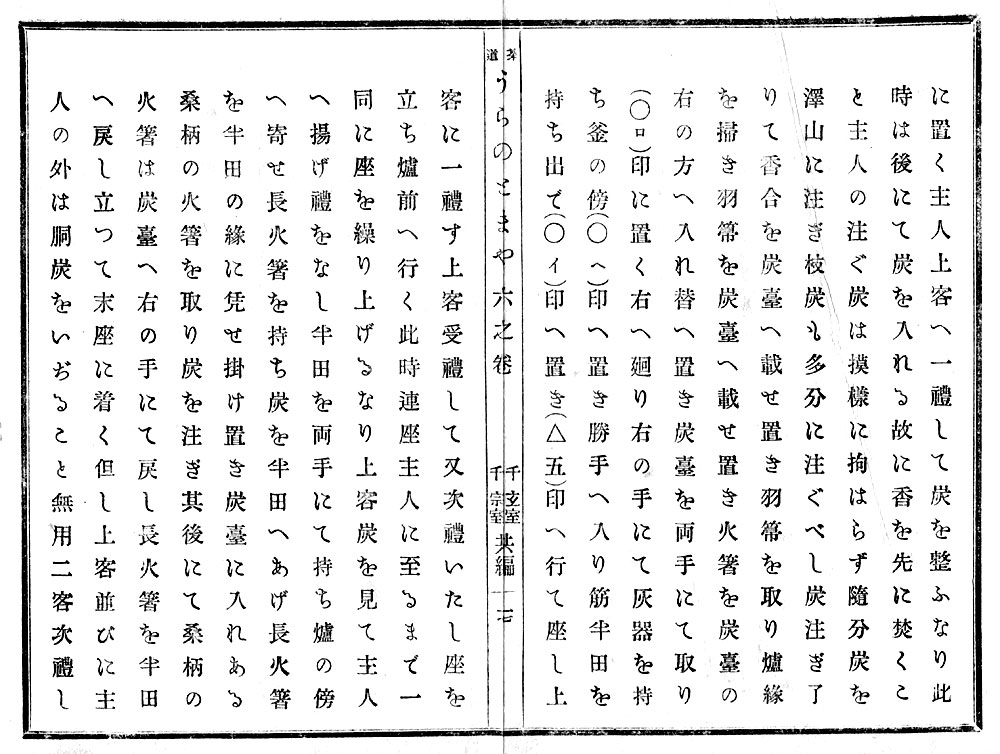 に置く主人上客へ一禮して炭を整ふなり此
時は後にて炭を入れる故に香を先に焚くこ
と主人の注ぐ炭は摸樣に拘はらず隨分炭を
澤山に注ぎ枝炭も多分に注ぐべし炭注ぎ了
りて香合を炭臺へ載せ置き羽箒を取り爐緣
を掃き羽箒を炭臺へ載せ置き火箸を炭臺の
右の方へ入れ替へ置き炭臺を両手にて取り
(〇ロ)印に置く右へ廻り右の手にて灰器を持
ち釜の傍(〇ヘ)印へ置き勝手へ入り筋半田を
持ち出で(〇イ)印へ置き(△五)印へ行て座し上
茶道 うらのとまや 六之卷 千玄室 千宗室 共編 十七
客に一禮す上客受禮して又次禮いたし座を
立ち爐前へ行く此時連座主人に至るまで一
同に座を繰り上げるなり上客炭を見て主人
へ揚げ禮をなし半田を両手にて持ち爐の傍
へ寄せ長火箸を持ち炭を半田へあげ長火箸
を半田の緣に凭せ掛け置き炭臺に入れある
桑柄の火箸を取り炭を注ぎ其後にて桑柄の
火箸は炭臺へ右の手にて戻し長火箸を半田
へ戻し立つて末座に着く但し上客並びに主
人の外は胴炭をいぢること無用二客次禮し